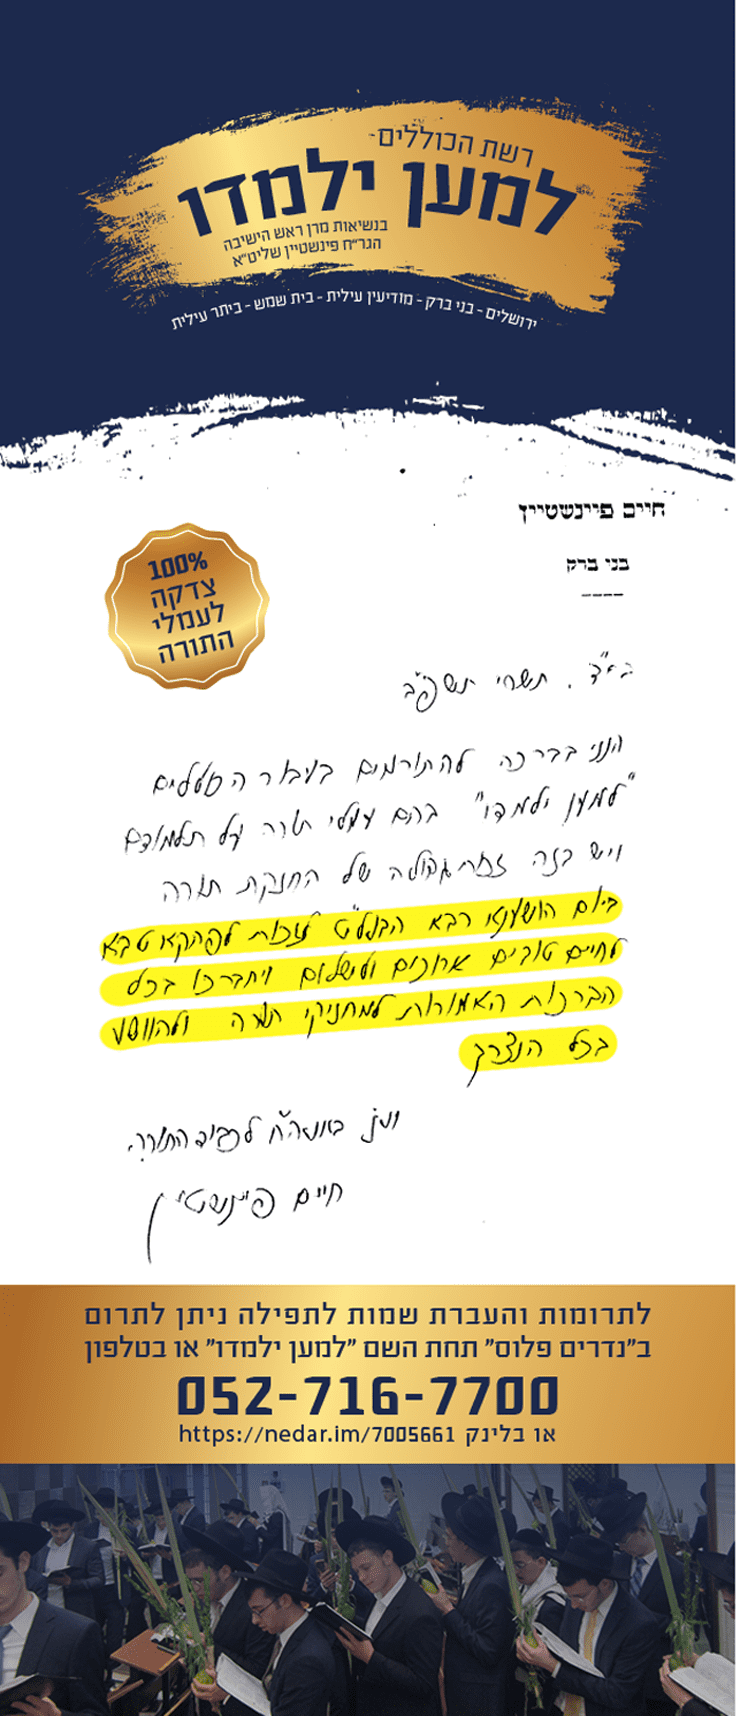 רשת הכוללים-
למען ילמדו
בנשיאות מרן ראש הישיבה
הגר״ח פינשטיין שליט״א
ירושלים - בני ברק - מודיעין עילית - בית שמש - ביתר עילית
חיים פיינשטיין
בני ברק
100%
צדקה
לעמלי
התורה
בס"ד, תשרי תשפ"ב
הנני בברכה להתורמים בעבור הכוללים
"למען ילמדו" בהם עמלי תורה על תלמודם
ויש בזה זכות גדולה של החזקת תורה
ביום הושענא רבא הבעל"ט לזכות לפתקא טבא
לחיים טובים ארוכים ולשלום ויתברכו בכל
הברכות האמורות למחזיקי תורה ולהוושע
בכל הנצרך
לכבוד התורה.
חיים פיינשטיין
לתרומות והעברת שמות לתפילה ניתן לתרום
ב״נדרים פלוס״ תחת השם ״למען ילמדו״ או בטלפון
052-716-7700
או בלינק https://nedar.im/7005661